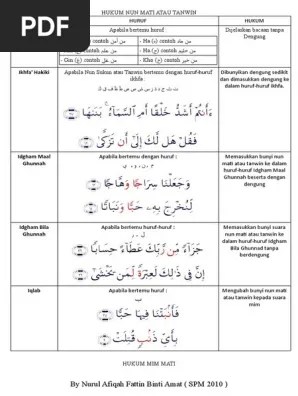 PDF
HUKUM NUN MATI ATAU TANWIN
HURUF
HUKUM
Apabila bertemu huruf
Dijelaskan bacaan tanpa
Dengung
contoh من آمن
- Ha (ح) contoh من حليم
- Kho (خ) contoh من خير
Ikhfa' Hakiki
Apabila Nun Sukun atau Tanwin bertemu dengan huruf-huruf
ikhfa.
Dibunyikan dengung sedikit
dan dimasukkan dengung ke
dalam huruf-huruf Ikhfa.
ءَأَنتُمْ أَشَدُّ خَلْقًا أَمِ ٱلسَّمَآءُ ۚ بَنَىٰهَا
فَقُلْ هَل لَّكَ إِلَىٰٓ أَن تَزَكَّىٰ
Idgham Maal
Ghunnah
Apabila bertemu dengan huruf :
Memasukkan bunyi nun
mati atau tanwin ke dalam
huruf-huruf Idgham Maal
Ghunnah beserta dengan
dengung
وَجَعَلْنَا سِرَاجًا وَهَّاجًا
لِّنُخْرِجَ بِهِۦ حَبًّا وَنَبَاتًا
Idgham Bila
Ghunnah
Apabila bertemu huruf-huruf :
ل ، ر
Memasukkan bunyi suara
nun mati atau tanwin ke
dalam huruf-huruf Idgham
Bila Ghunnah tanpa
berdengung
جَزَآءً مِّن رَّبِّكَ عَطَآءً حِسَابًا
إِنَّ فِى ذَٰلِكَ لَعِبْرَةً لِّمَن يَخْشَىٰٓ
Iqlab
Apabila bertemu huruf :
Mengubah bunyi nun mati
atau tanwin kepada suara
mim
فَأَنۢبَتْنَا فِيهَا حَبًّا
بِأَىِّ ذَنۢبٍ قُتِلَتْ
HUKUM MIM MATI
By Nurul Afiqah Fattin Binti Amat ( SPM 2010 )